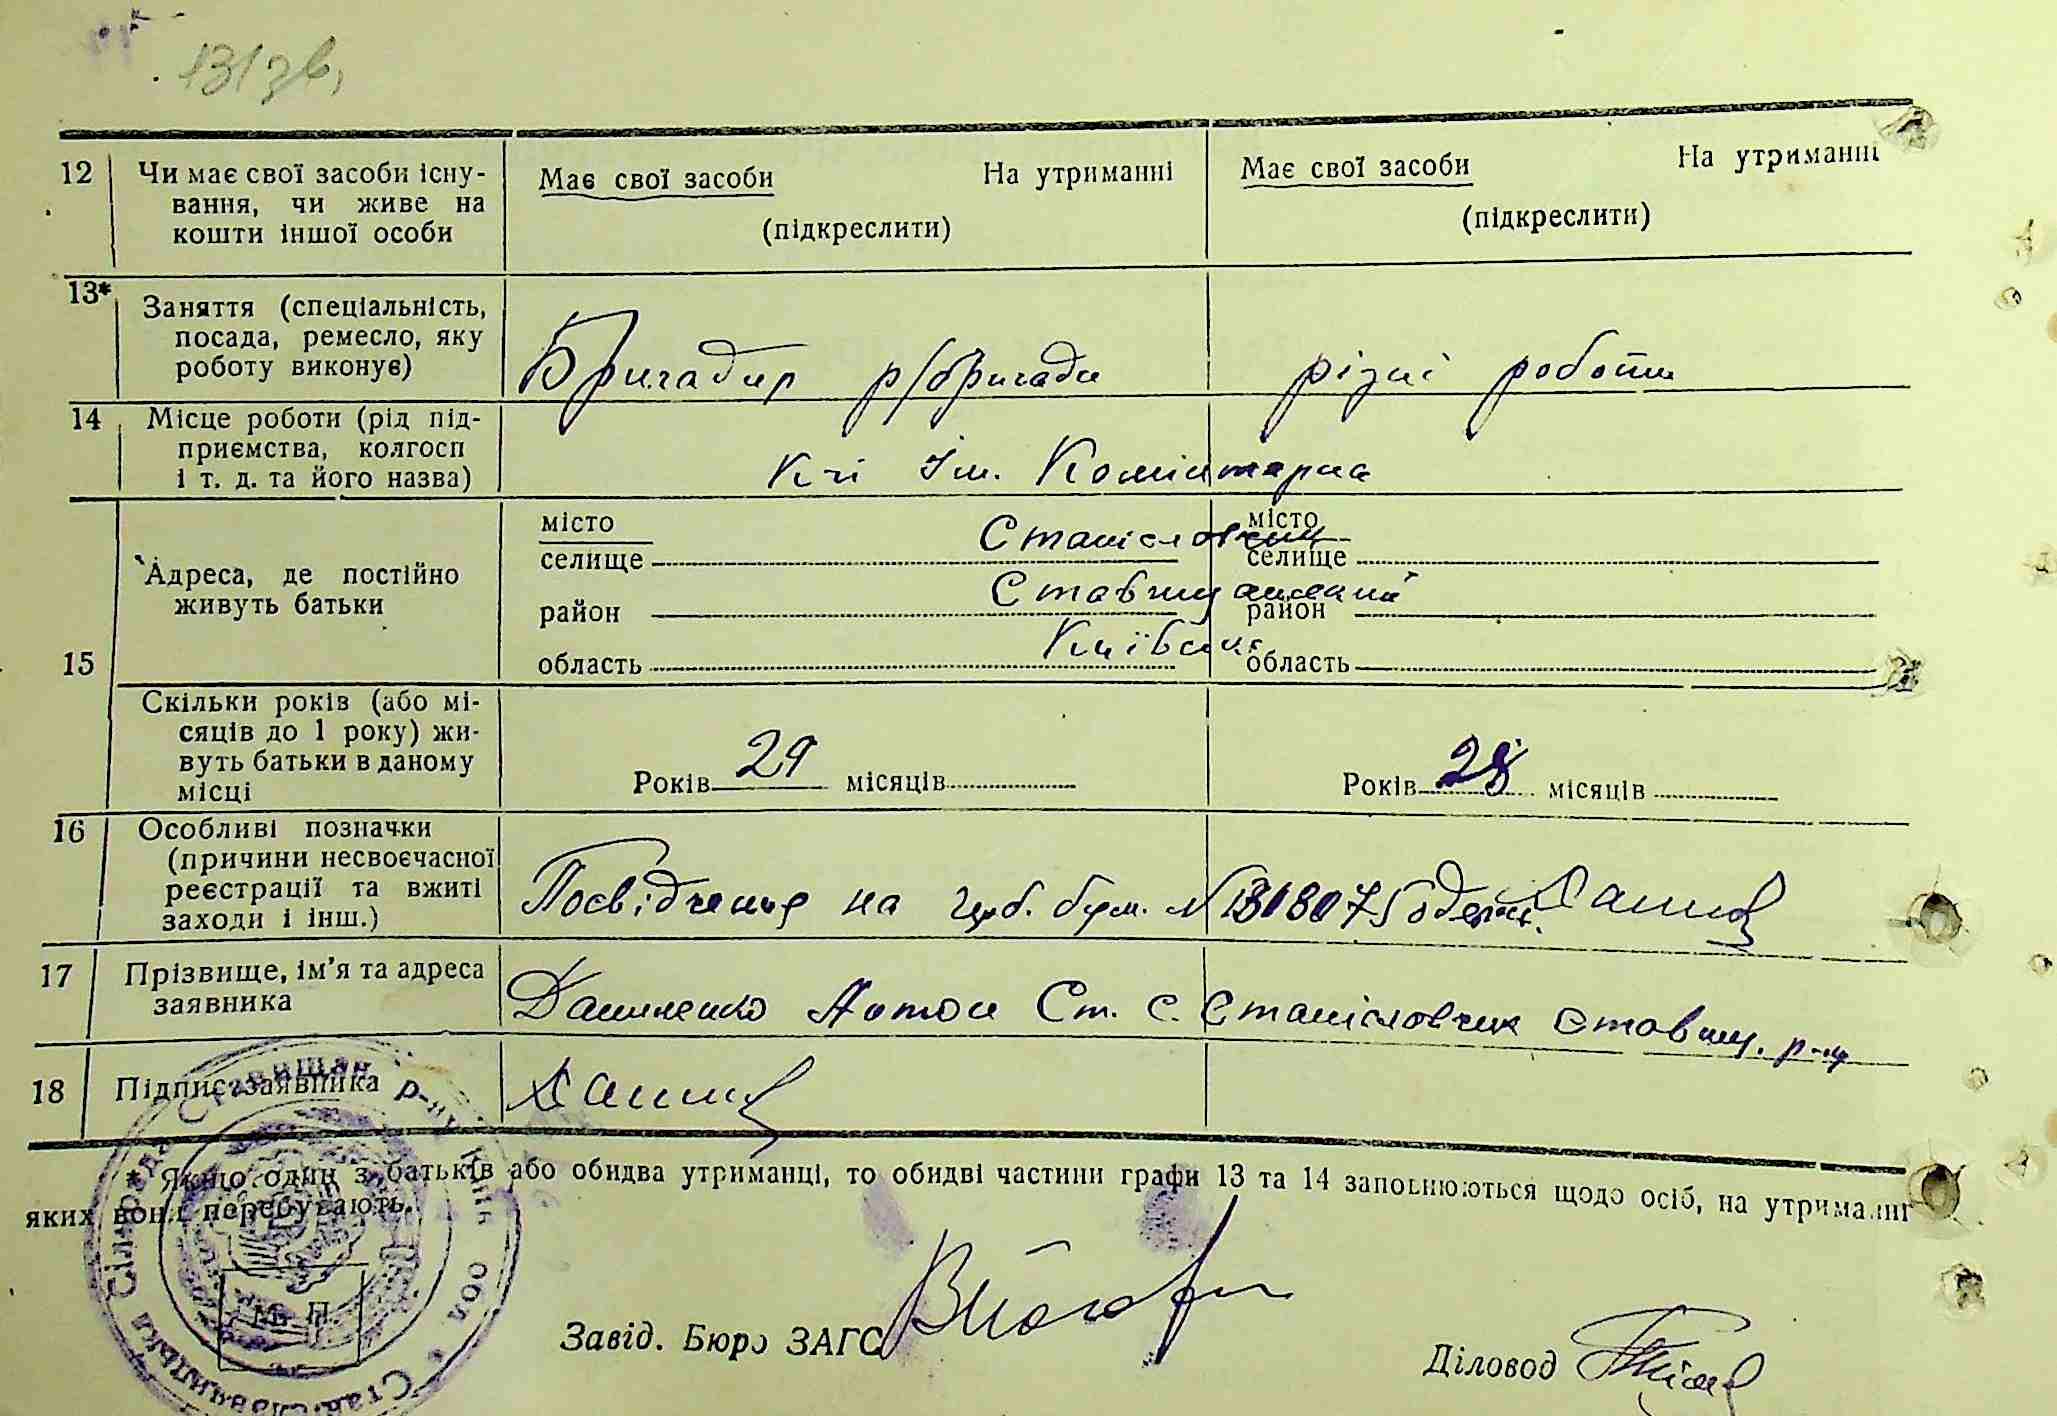 131зв.
12 Чи має свої засоби існу-
вання, чи живе на
кошти іншої особи
Має свої засоби На утриманні
(підкреслити)
Має свої засоби На утриманні
(підкреслити)
13* Заняття (спеціальність,
посада, ремесло, яку
роботу виконує)
Бригадир р/бригади
різні роботи
14 Місце роботи (рід під-
приємства, колгосп
і т. д. та його назва)
Кгі Ім. Комінтерна
15 Адреса, де постійно
живуть батьки
місто
селище Станіслов
район Ставищанский
область Київська
місто
селище
район
область
Скільки років (або мі-
сяців до 1 року) жи-
вуть батьки в даному
місці
Років 29 місяців
Років 28 місяців
16 Особливі позначки
(причини несвоєчасної
реєстрації та вжиті
заходи і інш.)
Посвідчення на герб. бум. № одерж.
17 Прізвище, ім'я та адреса
заявника
Даниленко Антон Ст. с. Станіславчик Ставищ. р-ну
18 Підпис заявника
* Якщо один з батьків або обидва утриманці, то обидві частини графи 13 та 14 заповнюються щодо осіб, на утриманні
яких вони перебувають.
М. П.
Ставищан р-ну Київ обл
Завід. Бюро ЗАГС
Діловод